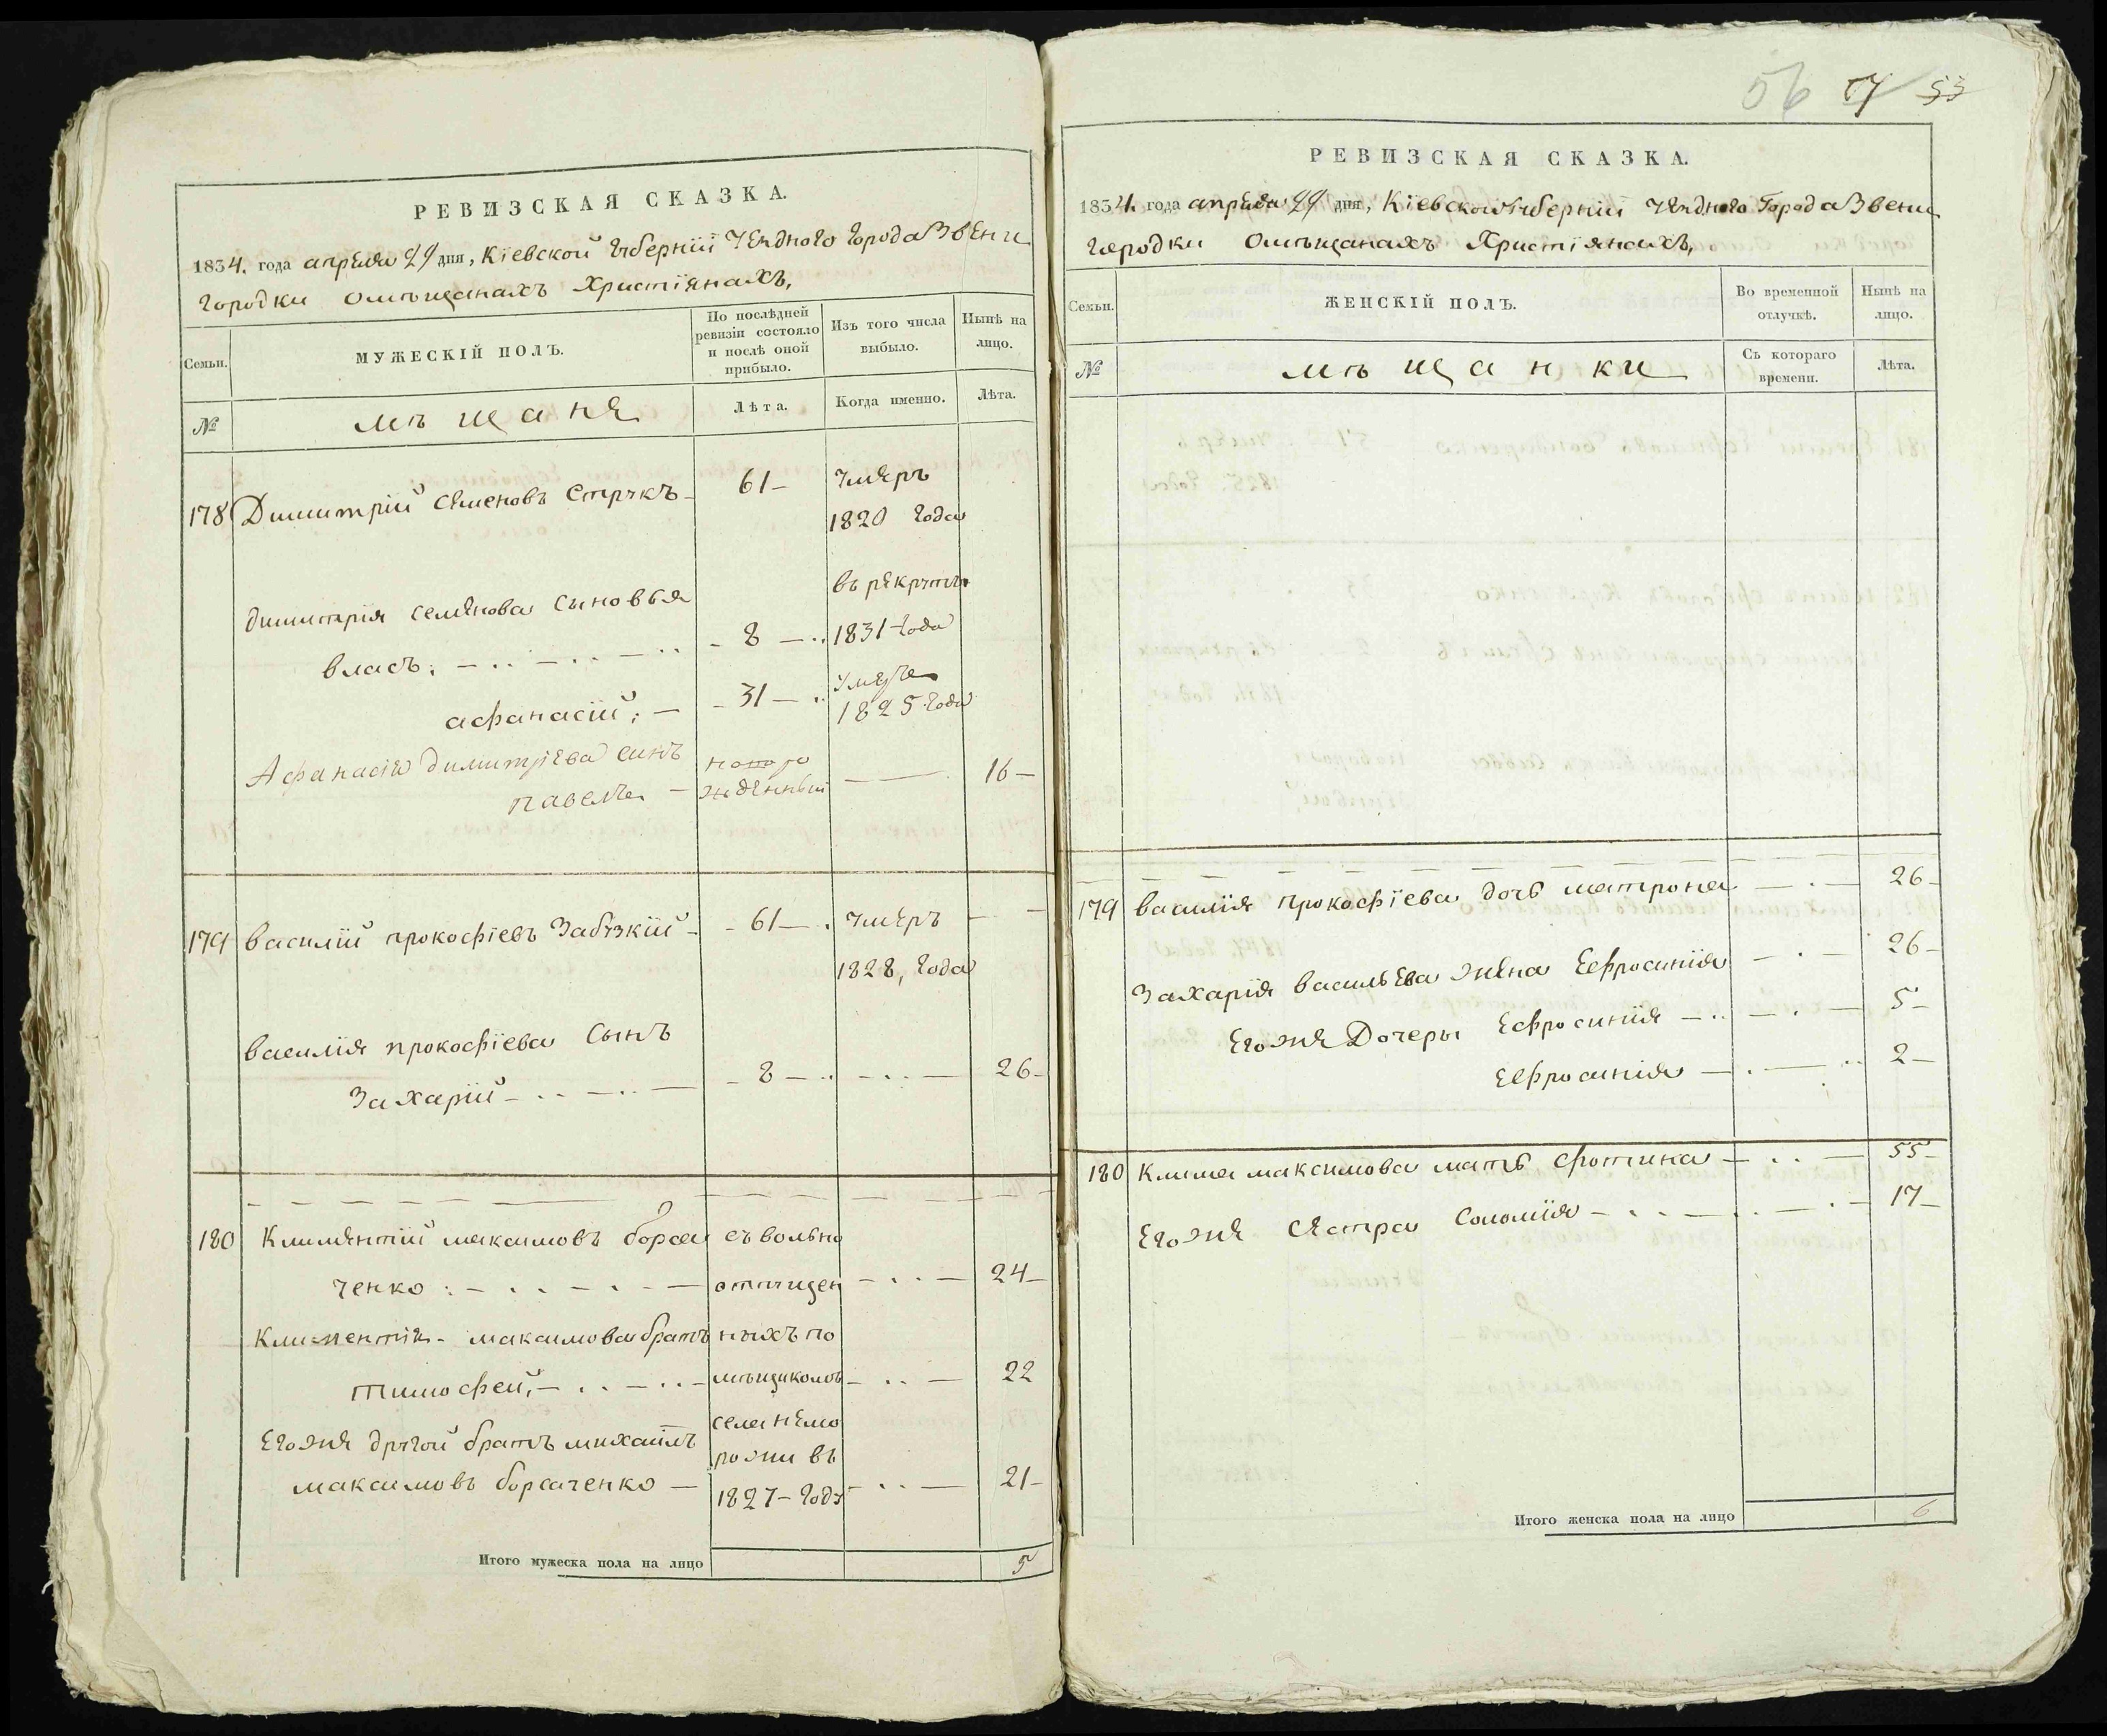 РЕВИЗСКАЯ СКАЗКА.
1834. года апреля 29 дня, Кіевской губерніи уезднаго города Звени
городки омѣщанахъ Христіянахъ,
Семьи.
МУЖЕСКІЙ ПОЛЪ.
По послѣдней
ревизіи состояло
и послѣ оной
прибыло.
Изъ того числа
выбыло.
Нынѣ на
лицо.
№
мѣщане
Лѣта.
Когда именно.
Лѣта.
178 Димитрій Семеновъ Струкъ - 61 - умеръ
1820 года
димитрія семенова сыновья въ рекруты
власъ: - 8 - 1831 года
афанасій; - 31 - умеръ
1825 года
Афанасія димитріева синъ новоро
павелъ - жденный - 16 -
179 василій прокофіевъ Забузкій - 61 - умеръ - -
1828, года
василія прокофіева Сынъ
Захарій - 8 - 26 -
180 Климентій максимовъ борса съ вольно
ченко : - отпущен - 24 -
Климентія - максимова братъ ныхъ по
тимофей, - мѣщиковъ - 22
села немо
егоже другой братъ михаилъ рожи въ
максимовъ борсаченко - 1827 - году - 21 -
Итого мужеска пола на лицо 5
56 57 53
РЕВИЗСКАЯ СКАЗКА.
1834. года апреля 29 дня, Кіевской губерніи уезднаго Города Звени
городки омѣщанахъ Христіянахъ,
Семьи.
ЖЕНСКІЙ ПОЛЪ.
Во временной
отлучкѣ.
Нынѣ на
лицо.
№
мѣщанки
Съ котораго
времени.
Лѣта.
179 василія прокофіева дочь матрона - 26 -
Захарія васильева жена Ефросинія - 26 -
Егоже Дочеры Ефросинія - 5 -
Ефросинія - 2 -
180 Клима максимова мать фотина - 55 -
Егоже сестра Соломія - 17 -
Итого женска пола на лицо 6